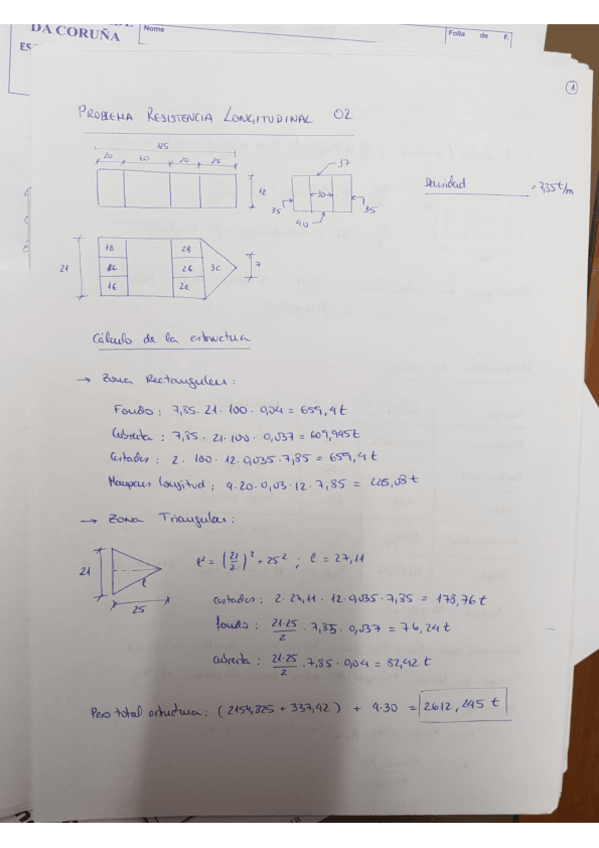 DA CORUÑA
ES
Nome
Folla de F.
1
PROBLEMA RESISTENCIA LONGITUDINAL 02
125
20 60 20 25
12
37
30
35
35
40
Densidad = 7,85 t/m
21
1B
1C
1E
2B
2C
2E
3C
7
Cálculo de la estructura
→ Zona Rectangular:
Fondo: 7,85 · 21 · 100 · 0,04 = 659,4 t
Cubierta: 7,85 · 21 · 100 · 0,037 = 609,945 t
Costados: 2 · 100 · 12 · 0,035 · 7,85 = 659,4 t
Mamparos longitud: 4 · 20 · 0,03 · 12 · 7,85 = 226,08 t
→ Zona Triangular:
21
25
l
l² = (21/2)² + 25² ; l = 27,11
costados: 2 · 27,11 · 12 · 0,035 · 7,85 = 178,76 t
fondo: 21·25/2 · 7,85 · 0,037 = 76,24 t
cubierta: 21·25/2 · 7,85 · 0,04 = 82,42 t
Peso total estructura: (2154,825 + 337,42) + 4·30 = 2612,245 t